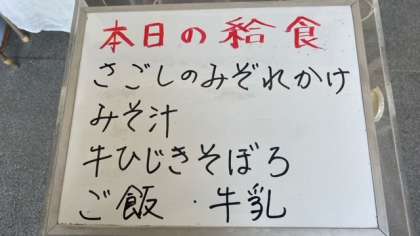 本日の給食
さごしのみぞれかけ
みそ汁
牛ひじきそぼろ
ご飯・牛乳